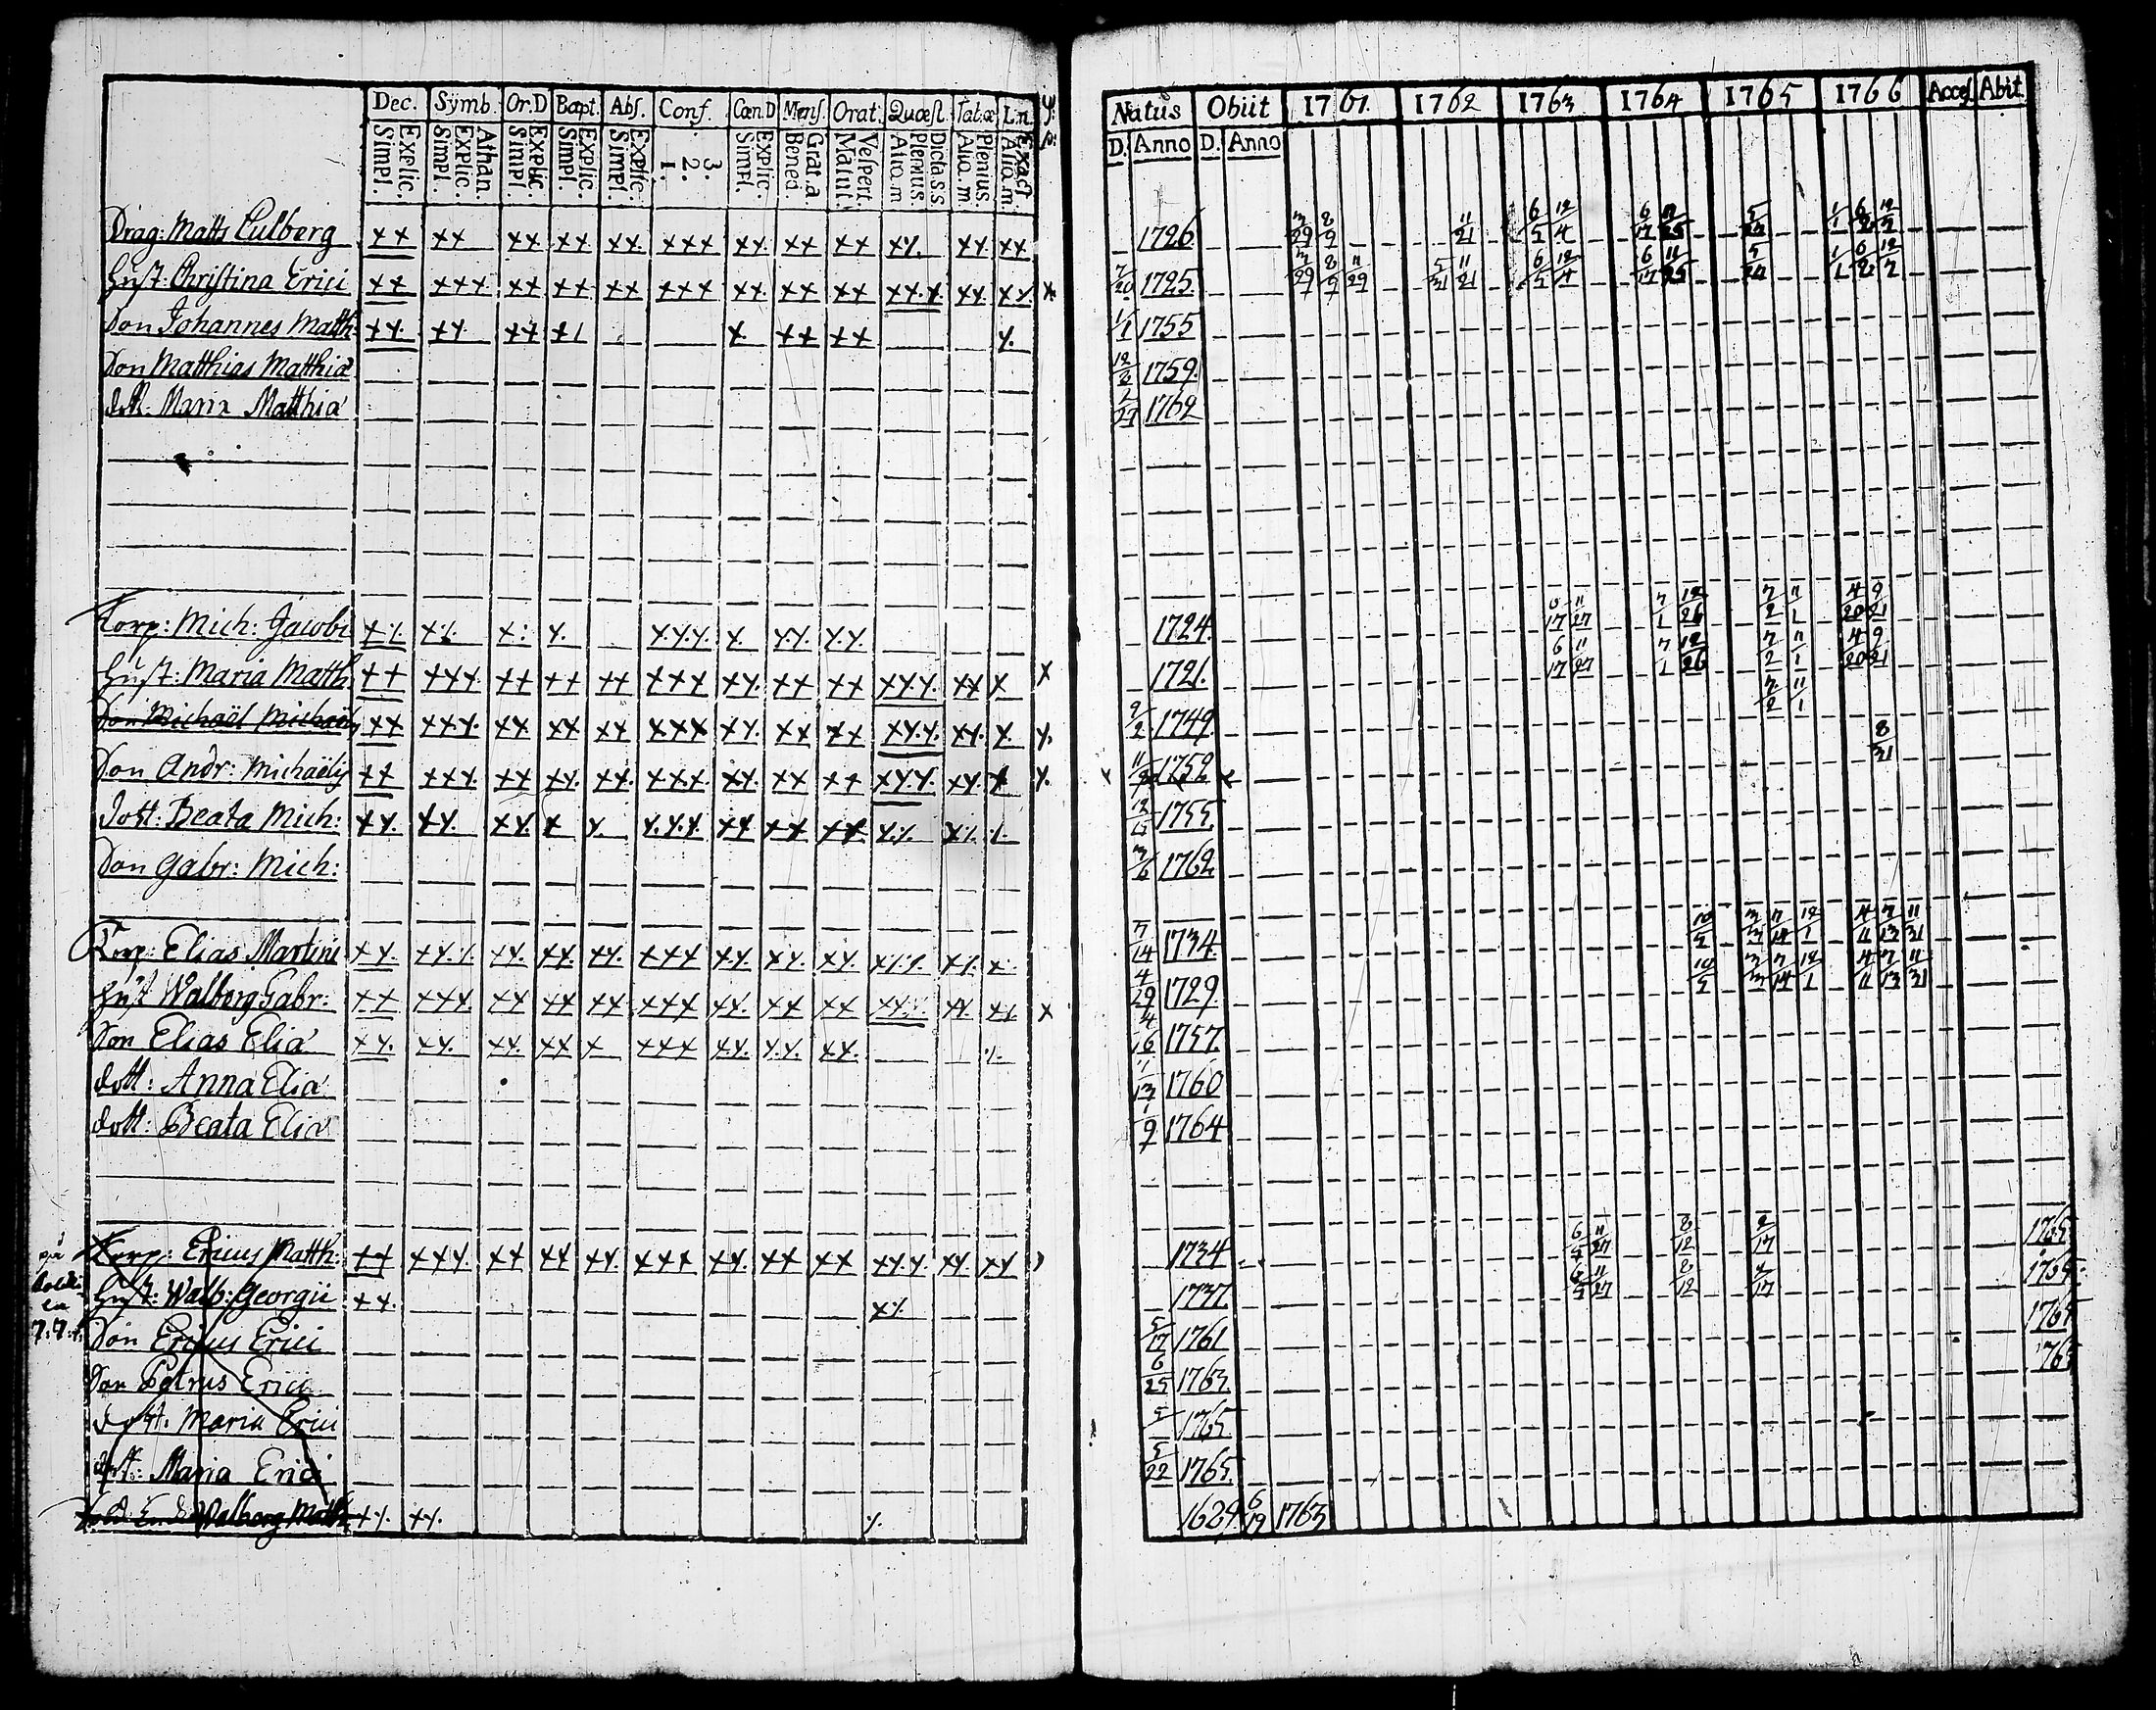 Dec. Sÿmb. Or.D Bapt. Abs. Conf. Cœn.D Mens. Orat. Quœst. Tab.œ Ln.
Explic. Simpl. Athan. Explic. Simpl. Explic. Simpl. Explic. Simpl. Explic. Simpl. 3. 2. 1. Explic. Simpl. Grat.a. Bened. Vespert. Matut. Dict.s.s. Plenius. Aliq.m. Plenius. Aliq.m. Exact Aliq.m.
Drag: Matts Culberg xx xx xx xx xx xxx xx xx xx xx xx xx
Hust: Christina Erici xx xxx xx xx xx xxx xx xx xx xxx xx xx x
Son Johannes Matth: xx xx xx x x xx xx x
Son Matthias Matthiæ
dott. Maria Matthiæ
Korp: Mich: Jacobi
Hust: Maria Matth. xx xxx xx xx xx xxx xx xx xx xxx xx x x
Son Michaël Michaëlis xx xxx xx xx xx xxx xx xx xx xxx xx x x
Son Andr: Michaëlis xx xxx xx xx xx xxx xx xx xx xxx xx x x
dott: Beata Mich: xx xx xx x x xxx xx xx xx
Son Gabr: Mich:
Korp: Elias Martini
Hust Walberg Gabr: xx xxx xx xx xx xxx xx xx xx
Son Elias Eliæ xx xx xx xx x xxx xx xx xx
dott: Anna Eliæ
dott: Beata Eliæ
Korp: Ericus Matth: xx xxx xx xx xx xxx xx xx xx xxx xx xx
Hust: Walb: Georgii xx
Son Ericus Erici
Son Petrus Erici
dott: Maria Erici
dott: Maria Erici
Walberg Matth
Natus Obiit 1761 1762 1763 1764 1765 1766 Acces. Abit.
D. Anno D. Anno
1726 3/29 8/9 11/21 6/5 12/4 6/17 11/25 5/24 1/1 6/2 12/2
7/20 1725 3/29 8/9 11/29 5/31 11/21 6/5 12/4 6/17 11/25 5/24 1/1 6/2 12/2
1/1 1755
12/8 1759
2/27 1762
1724 6/17 11/27 7/1 12/26 7/2 11/1 4/20 9/21
1721 6/17 11/27 7/1 12/26 7/2 11/1 4/20 9/21
9/2 1749 7/2 11/1
1752 8/31
1755
3/6 1762
7/14 1734 10/2 3/3 7/14 12/1 4/11 7/13 11/31
4/29 1729 10/2 3/3 7/14 12/1 4/11 7/13 11/31
4/6 1757
1/13 1760
1/9 1764
1734 6/5 11/27 8/12 2/17 1765
1737 6/5 11/27 8/12 2/17
5/17 1761 1765
6/25 1763 1765
5/ 1765
5/22 1765
1629 6/19 1763